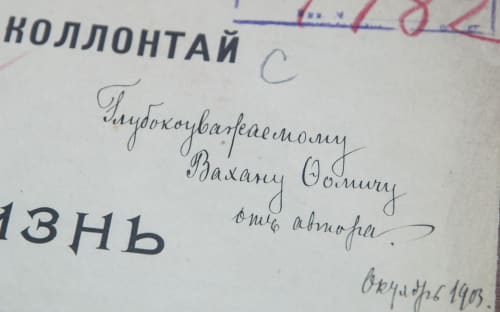 КОЛЛОНТАЙ
С
Глубокоуважаемому
Вахану Ѳомичу
отъ автора.
ИЗНЬ
Октябрь 1903.